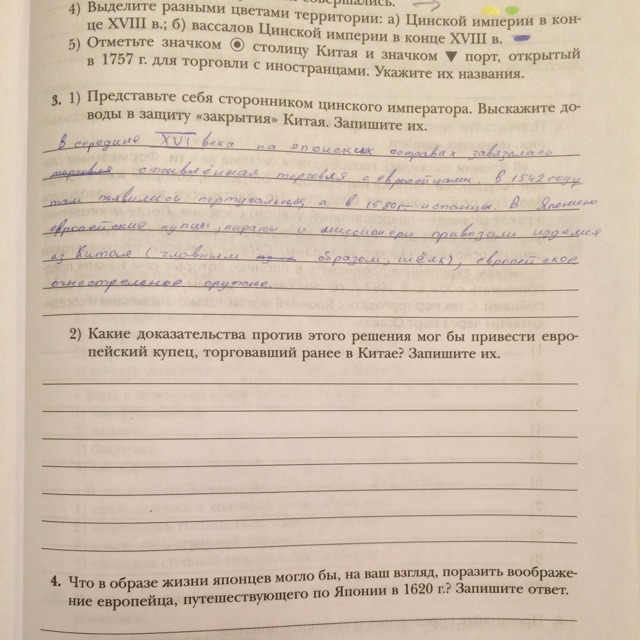 совершались.
4) Выделите разными цветами территории: а) Цинской империи в кон-
це XVIII в.; б) вассалов Цинской империи в конце XVIII в.
5) Отметьте значком ◉ столицу Китая и значком ▼ порт, открытый
в 1757 г. для торговли с иностранцами. Укажите их названия.
3. 1) Представьте себя сторонником цинского императора. Выскажите до-
воды в защиту «закрытия» Китая. Запишите их.
В середине XVI века на японских островах завязалась
торговля оживлённая торговля с европейцами. В 1542 году
там появились португальцы, а в 1580г – испанцы. В Японию
европейские купцы, пираты и миссионеры привозили изделия
из Китая (главным образом, шёлк), европейское
огнестрельное оружие.
2) Какие доказательства против этого решения мог бы привести евро-
пейский купец, торговавший ранее в Китае? Запишите их.
4. Что в образе жизни японцев могло бы, на ваш взгляд, поразить воображе-
ние европейца, путешествующего по Японии в 1620 г.? Запишите ответ.